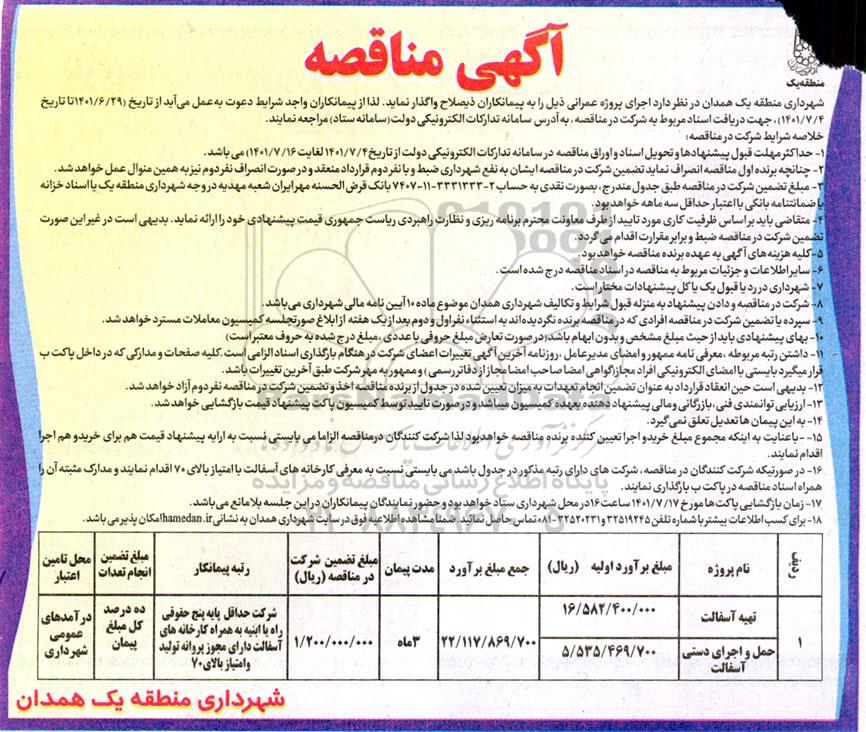 آگهی مناقصه
منطقه یک
شهرداری منطقه یک همدان در نظر دارد اجرای پروژه عمرانی ذیل را به پیمانکاران ذیصلاح واگذار نماید. لذا از پیمانکاران واجد شرایط دعوت به عمل می‌آید از تاریخ (۱۴۰۱/۶/۲۹ تا تاریخ
۱۴۰۱/۷/۴)، جهت دریافت اسناد مربوط به شرکت در مناقصه، به آدرس سامانه تدارکات الکترونیکی دولت (سامانه ستاد) مراجعه نمایند.
خلاصه شرایط شرکت در مناقصه:
۱- حداکثر مهلت قبول پیشنهادها و تحویل اسناد و اوراق مناقصه در سامانه تدارکات الکترونیکی دولت از تاریخ ۱۴۰۱/۷/۴ لغایت ۱۴۰۱/۷/۱۶ می باشد.
۲- چنانچه برنده اول مناقصه انصراف نماید تضمین شرکت در مناقصه ایشان به نفع شهرداری ضبط و با نفر دوم قرارداد منعقد و در صورت انصراف نفر دوم نیز به همین منوال عمل خواهد شد.
۳- مبلغ تضمین شرکت در مناقصه طبق جدول مندرج، بصورت نقدی به حساب ۲-۳۳۳۱۳۳۳-۱۱-۷۴۰۷ بانک قرض الحسنه مهر ایران شعبه مهدیه در وجه شهرداری منطقه یک یا اسناد خزانه
یا ضمانتنامه بانکی با اعتبار حداقل سه ماهه خواهد بود.
۴- متقاضی باید بر اساس ظرفیت کاری مورد تایید از طرف معاونت محترم برنامه ریزی و نظارت راهبردی ریاست جمهوری قیمت پیشنهادی خود را ارائه نماید. بدیهی است در غیر این صورت
تضمین شرکت در مناقصه ضبط و برابر مقرارت اقدام می گردد.
۵- کلیه هزینه های آگهی به عهده برنده مناقصه خواهد بود.
۶- سایر اطلاعات و جزئیات مربوط به مناقصه در اسناد مناقصه درج شده است.
۷- شهرداری در رد یا قبول یک یا کل پیشنهادات مختار است.
۸- شرکت در مناقصه و دادن پیشنهاد به منزله قبول شرایط و تکالیف شهرداری همدان موضوع ماده ۱۰ آیین نامه مالی شهرداری می باشد.
۹- سپرده یا تضمین شرکت در مناقصه افرادی که در مناقصه برنده نگردیده اند به استثناء نفر اول و دوم بعد از یک هفته از ابلاغ صورتجلسه کمیسیون معاملات مسترد خواهد شد.
۱۰- بهای پیشنهادی باید از حیث مبلغ مشخص و بدون ابهام باشد (در صورت تعارض مبلغ حروفی با عددی، مبلغ درج شده به حروف معتبر است)
۱۱- داشتن رتبه مربوطه، معرفی نامه ممهور و امضای مدیرعامل، روزنامه آخرین آگهی تغییرات اعضای شرکت در هنگام بارگذاری اسناد الزامی است. کلیه صفحات و مدارکی که در داخل پاکت ب
قرار میگیرد بایستی با امضای الکترونیکی افراد مجاز (گواهی امضا صاحب امضا مجاز از دفاتر رسمی) و ممهور به مهر شرکت طبق آخرین تغییرات باشد.
۱۲- بدیهی است حین انعقاد قرارداد به عنوان تضمین انجام تعهدات به میزان تعیین شده در جدول از برنده مناقصه اخذ و تضمین شرکت در مناقصه نفر دوم آزاد خواهد شد.
۱۳- ارزیابی توانمندی فنی، بازرگانی و مالی پیشنهاد دهنده بعهده کمیسیون میباشد و در صورت تایید توسط کمیسیون پاکت پیشنهاد قیمت بازگشایی خواهد شد.
۱۴- به این پیمان ها تعدیل تعلق نمی گیرد.
۱۵- - با عنایت به اینکه مجموع مبلغ خرید و اجرا تعیین کننده برنده مناقصه خواهد بود لذا شرکت کنندگان در مناقصه الزاما می بایستی نسبت به ارایه پیشنهاد قیمت هم برای خرید و هم اجرا
اقدام نمایند.
۱۶- در صورتیکه شرکت کنندگان در مناقصه، شرکت های دارای رتبه مذکور در جدول باشد می بایستی نسبت به معرفی کارخانه های آسفالت با امتیاز بالای ۷۰ اقدام نمایند و مدارک مثبته آن را
همراه اسناد مناقصه در پاکت ب بارگذاری نمایند.
۱۷- زمان بازگشایی پاکت ها مورخ ۱۴۰۱/۷/۱۷ ساعت ۱۶ در محل شهرداری ستاد خواهد بود و حضور نمایندگان پیمانکاران در این جلسه بلامانع می باشد.
۱۸- برای کسب اطلاعات بیشتر با شماره تلفن ۳۲۵۱۹۲۴۵ و ۳۲۵۲۰۲۳۱-۰۸۱ تماس حاصل نمائید. ضمنا مشاهده اطلاعیه فوق در سایت شهرداری همدان به نشانی hamedan.ir امکان پذیر می باشد.
ردیف نام پروژه مبلغ برآورد اولیه (ریال) جمع مبلغ برآورد مدت پیمان مبلغ تضمین شرکت در مناقصه (ریال) رتبه پیمانکار مبلغ تضمین انجام تعدات محل تامین اعتبار
۱ تهیه آسفالت ۱۶/۵۸۲/۴۰۰/۰۰۰ ۲۲/۱۱۷/۸۶۹/۷۰۰ ۳ماه ۱/۲۰۰/۰۰۰/۰۰۰ شرکت حداقل پایه پنج حقوقی راه یا ابنیه به همراه کارخانه های آسفالت دارای مجوز پروانه تولید وامتیاز بالای ۷۰ ده درصد کل مبلغ پیمان درآمدهای عمومی شهرداری
حمل و اجرای دستی آسفالت ۵/۵۳۵/۴۶۹/۷۰۰
شهرداری منطقه یک همدان
پایگاه اطلاع رسانی مناقصه و مزایده